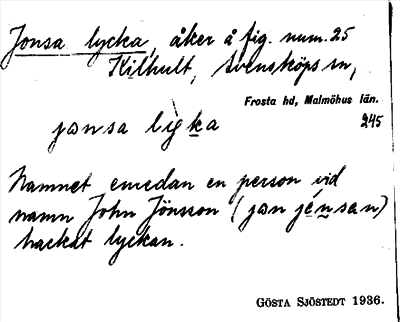 Jonsa lycka, åker å fig. num. 25
Kilhult, Svensköps sn,
Frosta hd, Malmöhus län.
245
jansa lìgka
Namnet emedan en person vid
namn John Jönsson (jan jénsan)
hackat lyckan.
GÖSTA SJÖSTEDT 1936.